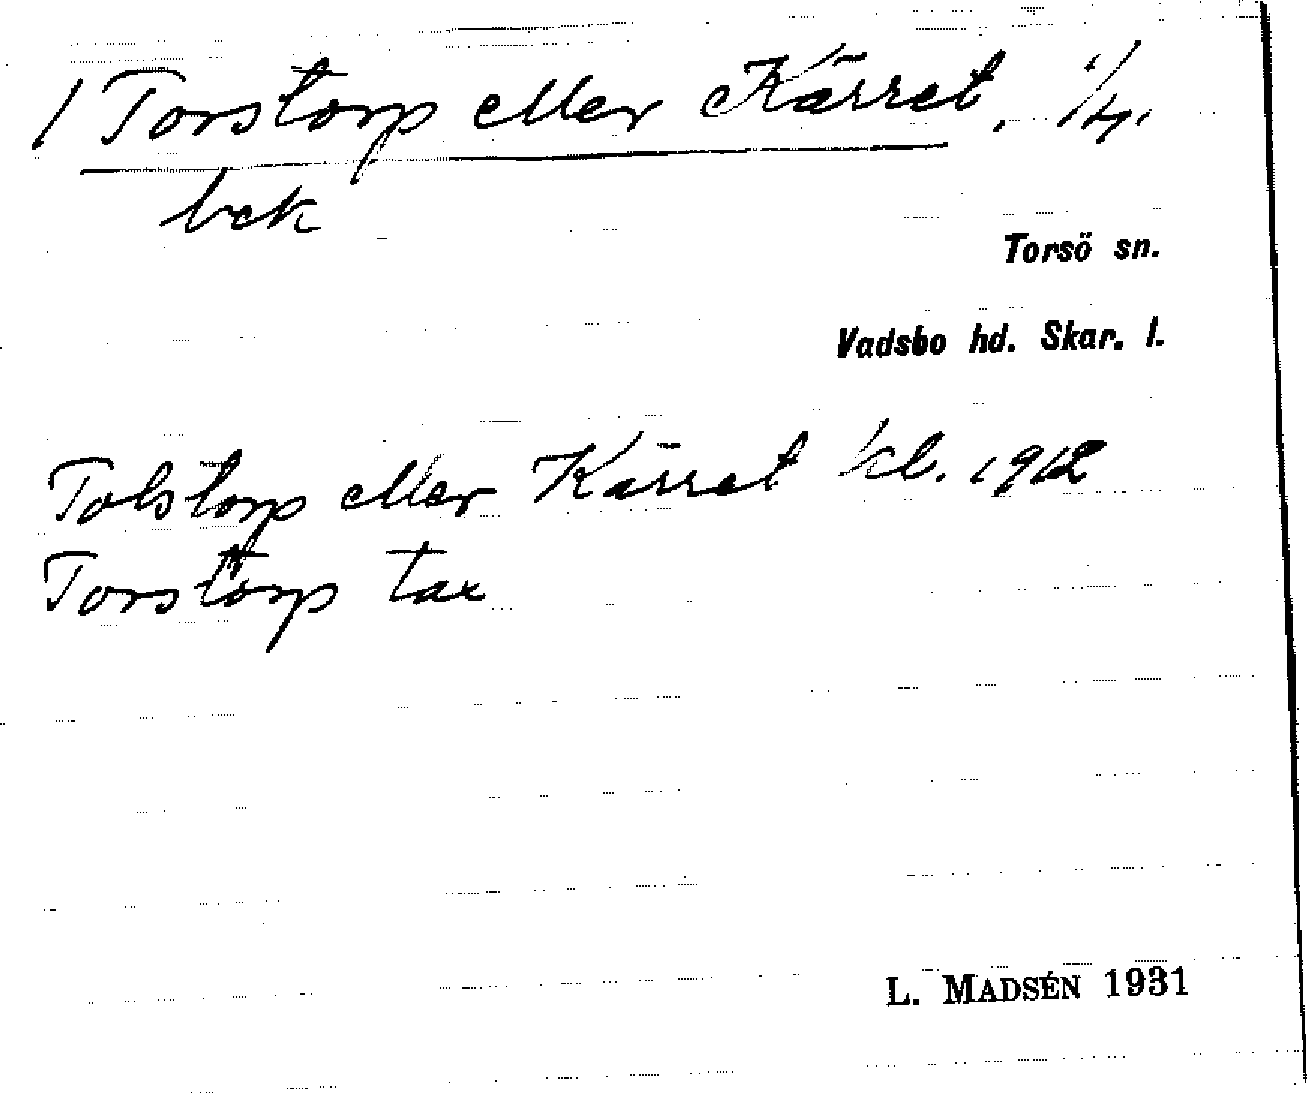 1 Torstorp eller Kärret, 1/4,
bek
Torsö sn.
Vadsbo hd. Skar. l.
Tolstorp eller Kärret kl. 1912
Torstorp tax
L. MADSÉN 1931